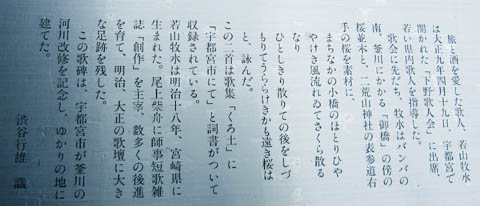 旅と酒を愛した歌人、若山牧水
は大正九年四月十九日、宇都宮で
開かれた「下野歌人会」に出席、
若い県内歌人を指導した。
歌会に先だち、牧水はバンバの
南、釜川にかかる「御橋」の傍の
桜並木と、二荒山神社の表参道右
手の桜を素材に、
まちなかの小橋のほとりひや
やけき風流れゐてさくら散る
なり
ひとしきり散りての後をしづ
もりてうららけきかも遠き桜は
と、詠んだ。
この二首は歌集「くろ土」に
「宇都宮市にて」と詞書がついて
収録されている。
若山牧水は明治十八年、宮崎県に
生まれた。尾上柴舟に師事短歌雑
誌「創作」を主宰、数多くの後進
を育て、明治、大正の歌壇に大き
な足跡を残した。
この歌碑は、宇都宮市が釜川の
河川改修を記念し、ゆかりの地に
建てた。
渋谷行雄 識